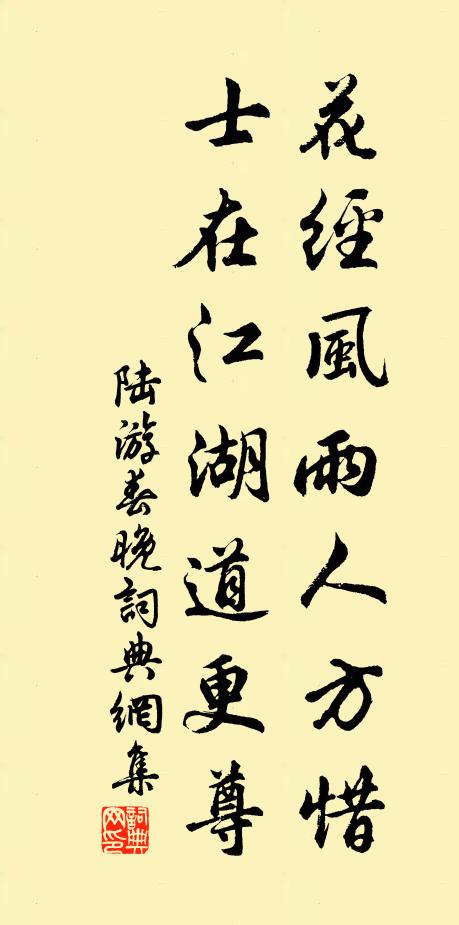 花經風雨人方惜
士在江湖道更尊
陆游春晚詞典網集
詞典
网印